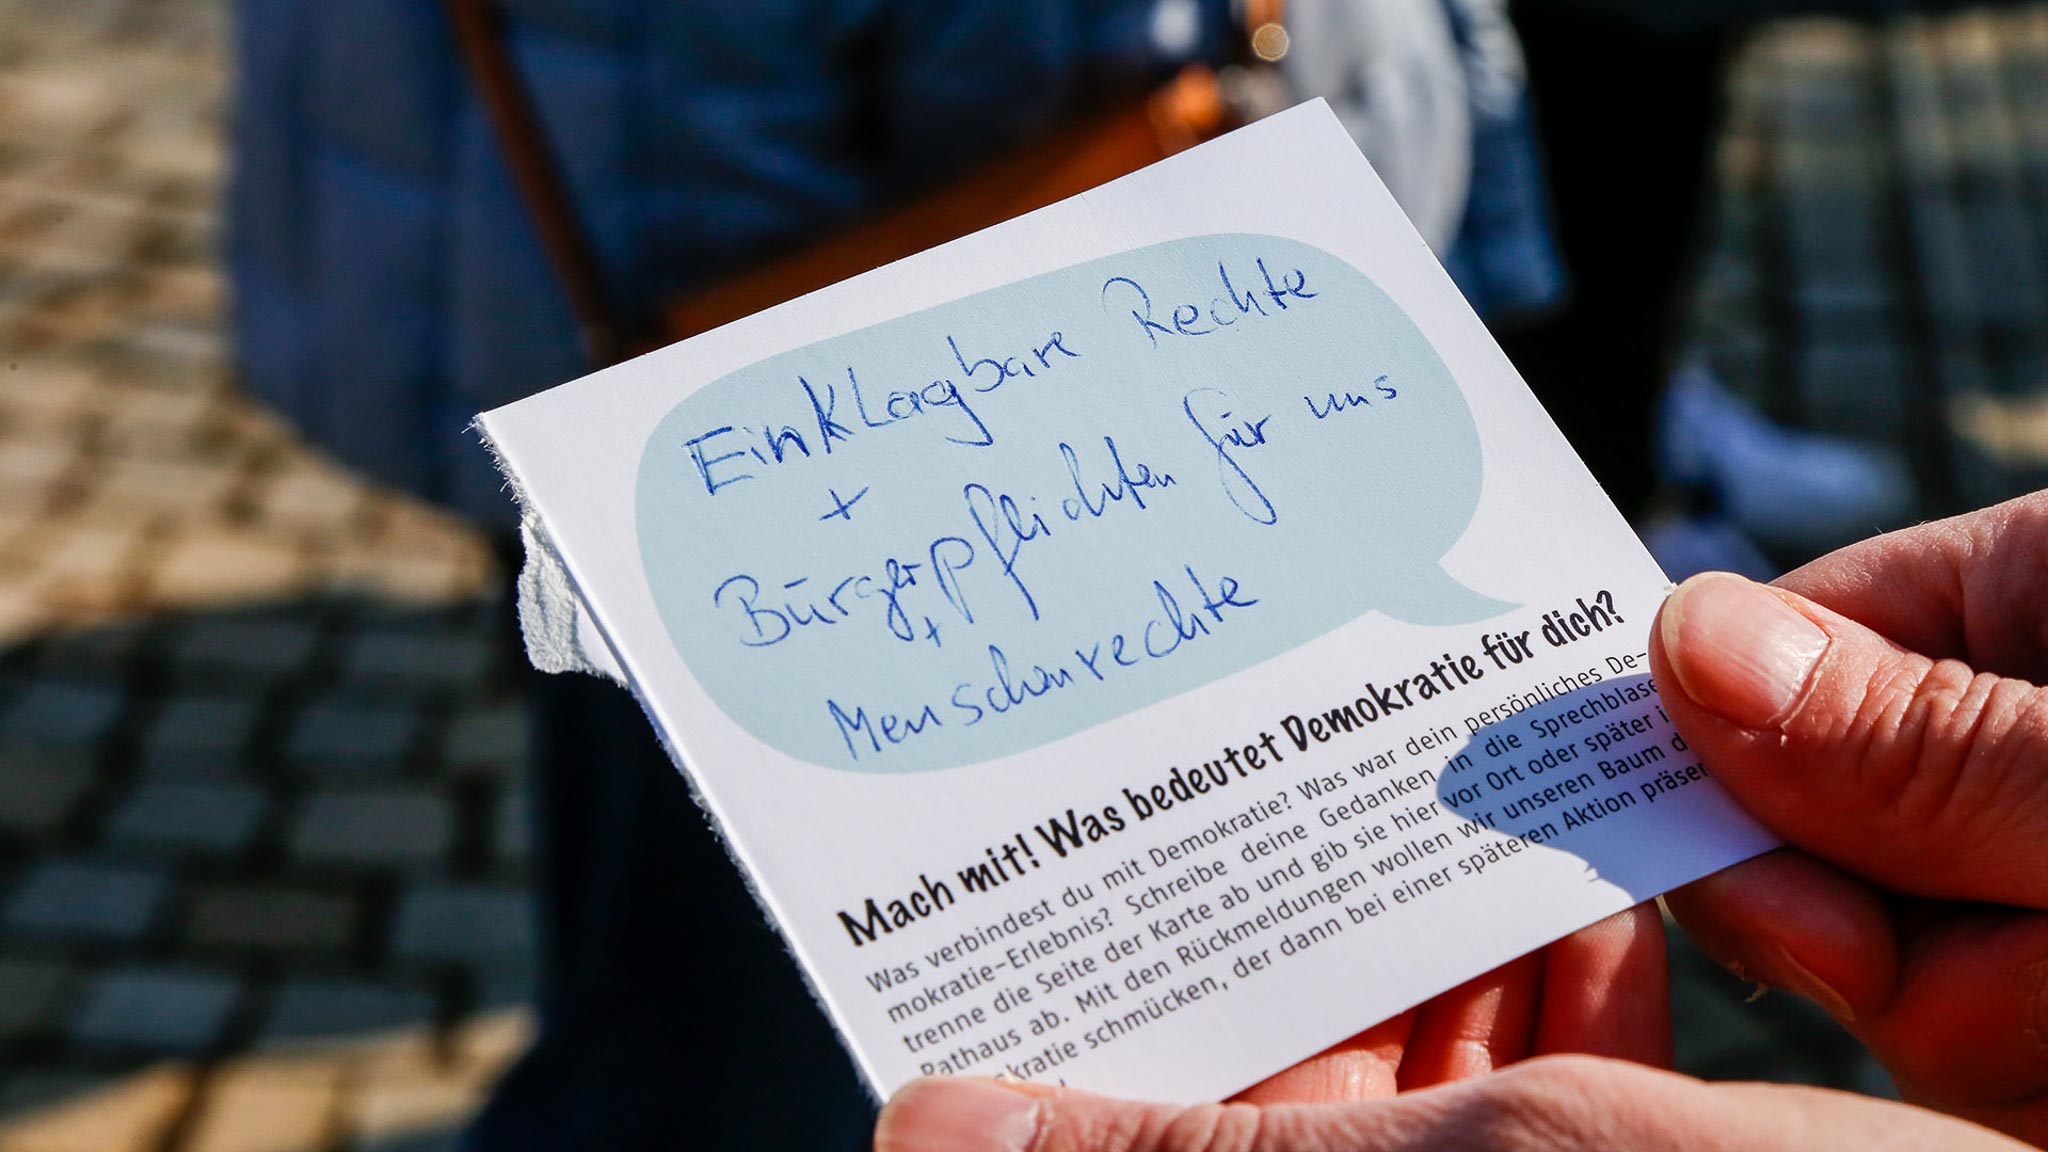 Einklagbare Rechte
+
Bürgerpflichten für uns
+
Menschenrechte
Mach mit! Was bedeutet Demokratie für dich?
Was verbindest du mit Demokratie? Was war dein persönliches De-
mokratie-Erlebnis? Schreibe deine Gedanken in die Sprechblase
trenne die Seite der Karte ab und gib sie hier vor Ort oder später i
Rathaus ab. Mit den Rückmeldungen wollen wir unseren Baum d
kratie schmücken, der dann bei einer späteren Aktion präsen